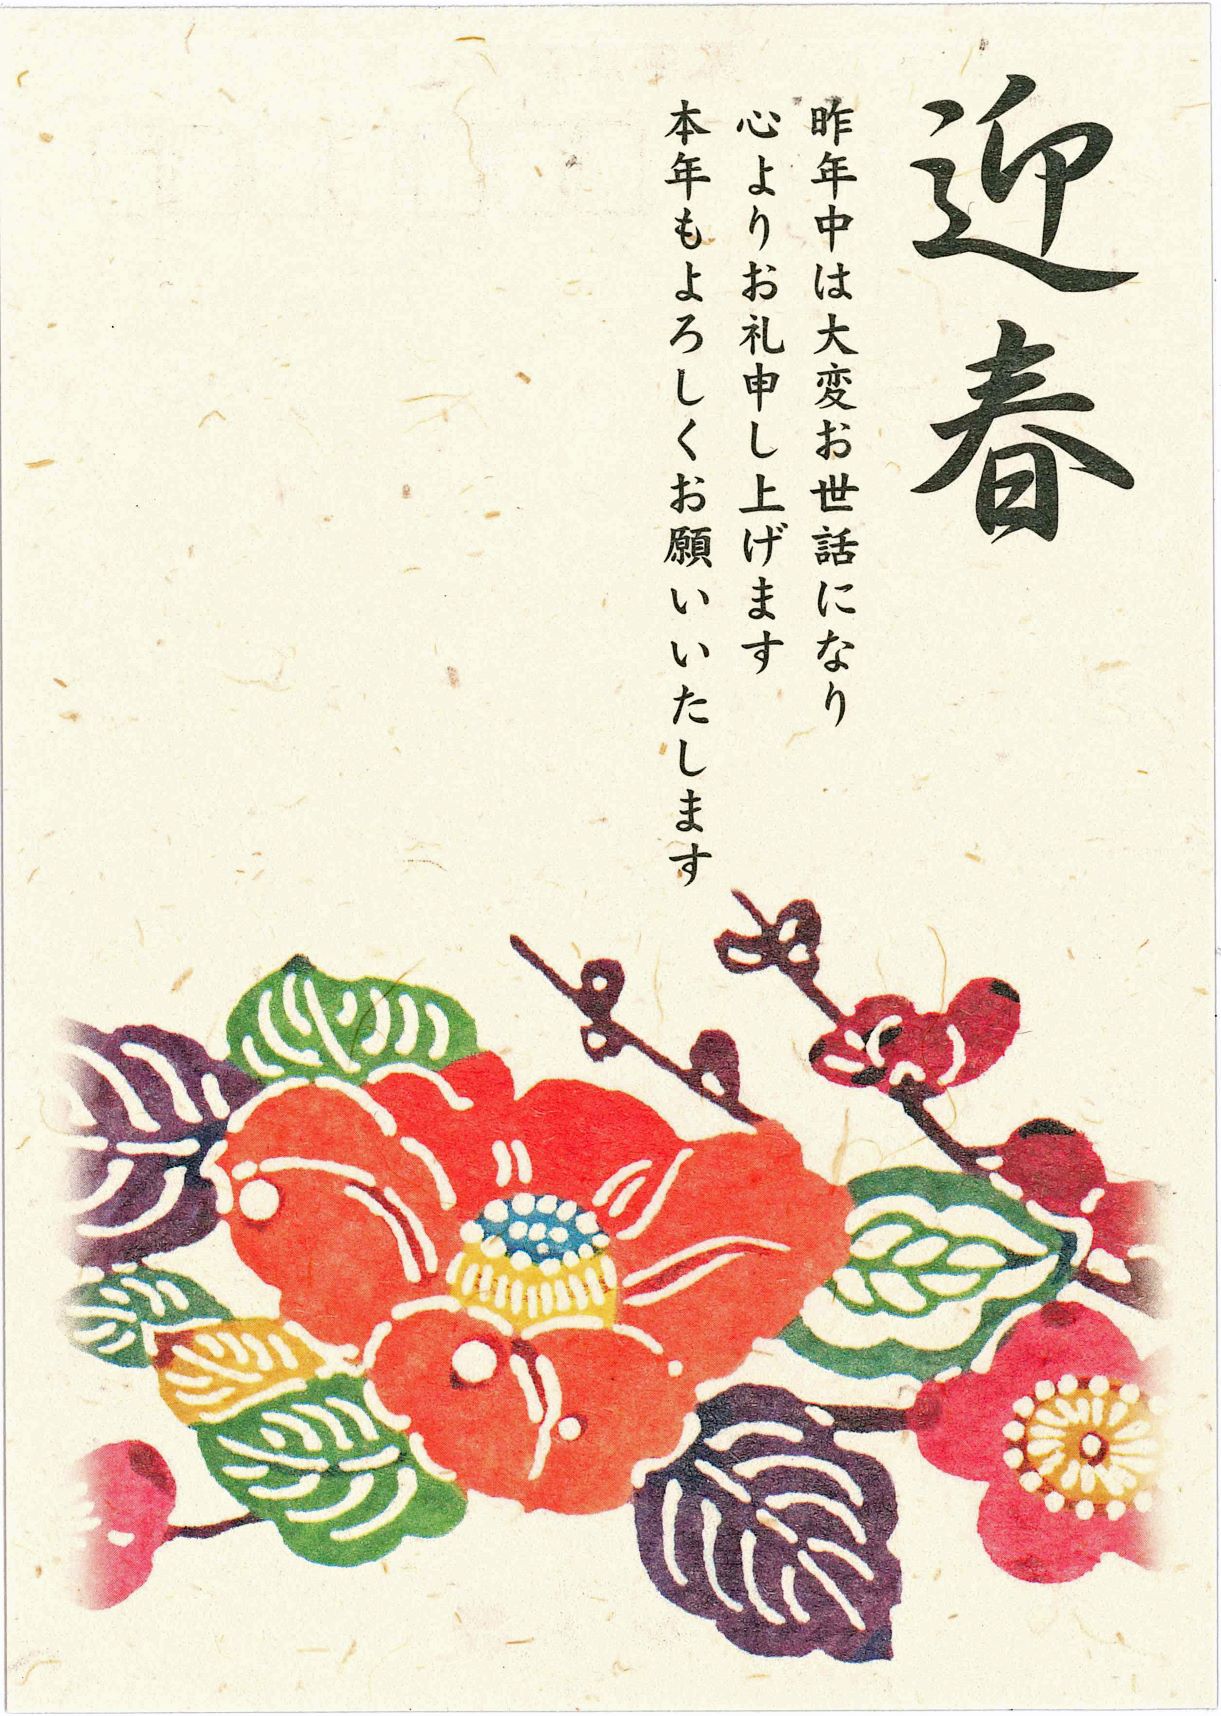 迎春
昨年中は大変お世話になり
心よりお礼申し上げます
本年もよろしくお願いいたします